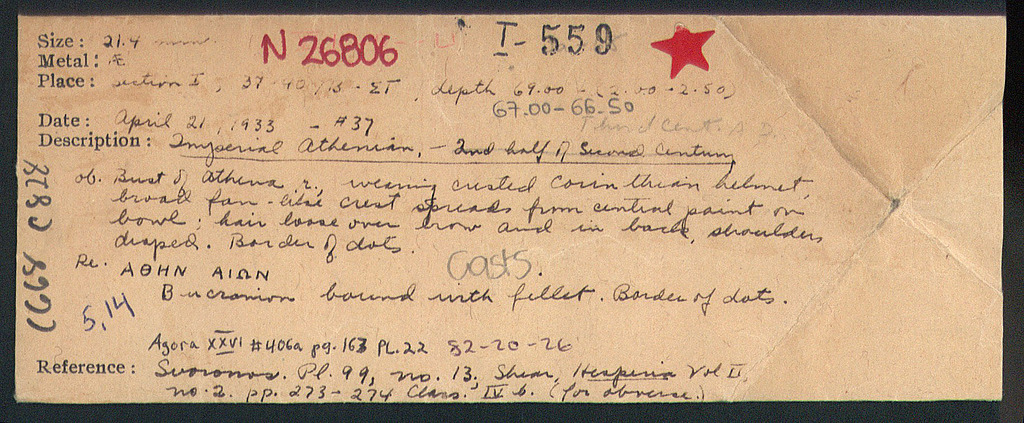 Size : 21.4 mm. N 26806 I - 559
Metal : Æ
Place : section I, 37-40/ - ΣΤ, depth 69.00 - (2.00-2.50)
67.00-66.50
Date : April 21, 1933 - #37 Third cent. A.D.
Description : Imperial Athenian, - 2nd half of Second Century
ob. Bust of Athena r., wearing crested Corinthian helmet,
broad fan-like crest spreads from central point on
bowl; hair loose over brow and in back, shoulders
draped. Border of dots.
Re. ΑΘΗΝ ΑΙΩΝ Casts.
Bucranion bound with fillet. Border of dots.
5,14
Agora XXVI #406a pg. 163 PL.22 82-20-26
Reference : Svoronos. Pl. 99, no. 13, Shear, Hesperia Vol II,
no. 2. pp. 273-274 Class. IV b. (for obverse.)